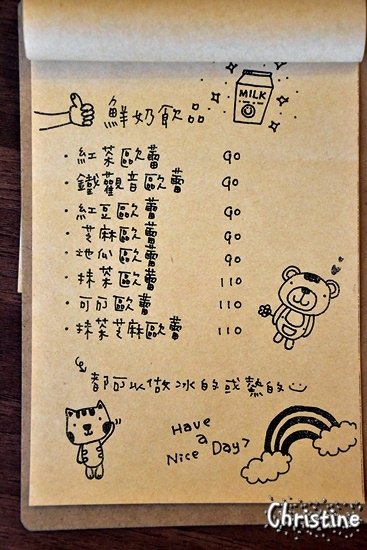 MILK
鮮奶飲品
・紅茶歐蕾 90
・鐵觀音歐蕾 90
・紅豆歐蕾 90
・芝麻歐蕾 90
・地瓜歐蕾 90
・抹茶歐蕾 110
・可可歐蕾 110
・抹茶芝麻歐蕾 110
都可以做冰的或熱的
Have
a
Nice Day?
Christine